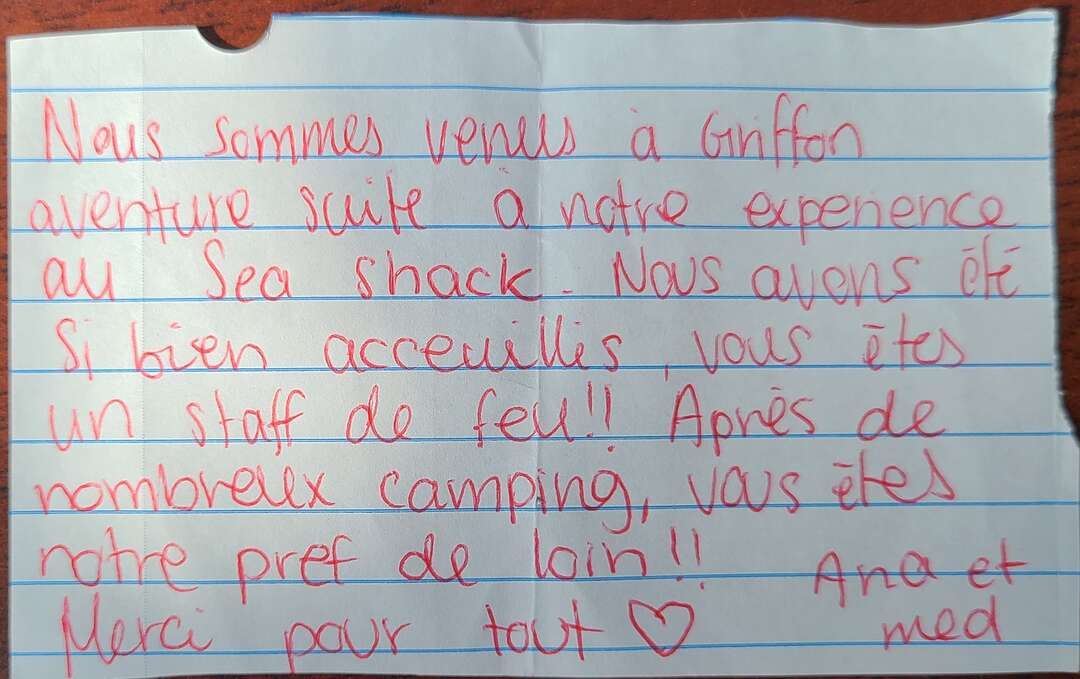 Nous sommes venus à Griffon
aventure suite à notre experience
au Sea shack. Nous avons été
Si bien acceuillis, vous êtes
un staff de feu!! Après de
nombreux camping, vous êtes
notre pref de loin!!
Ana et
Merci pour tout ♡
med